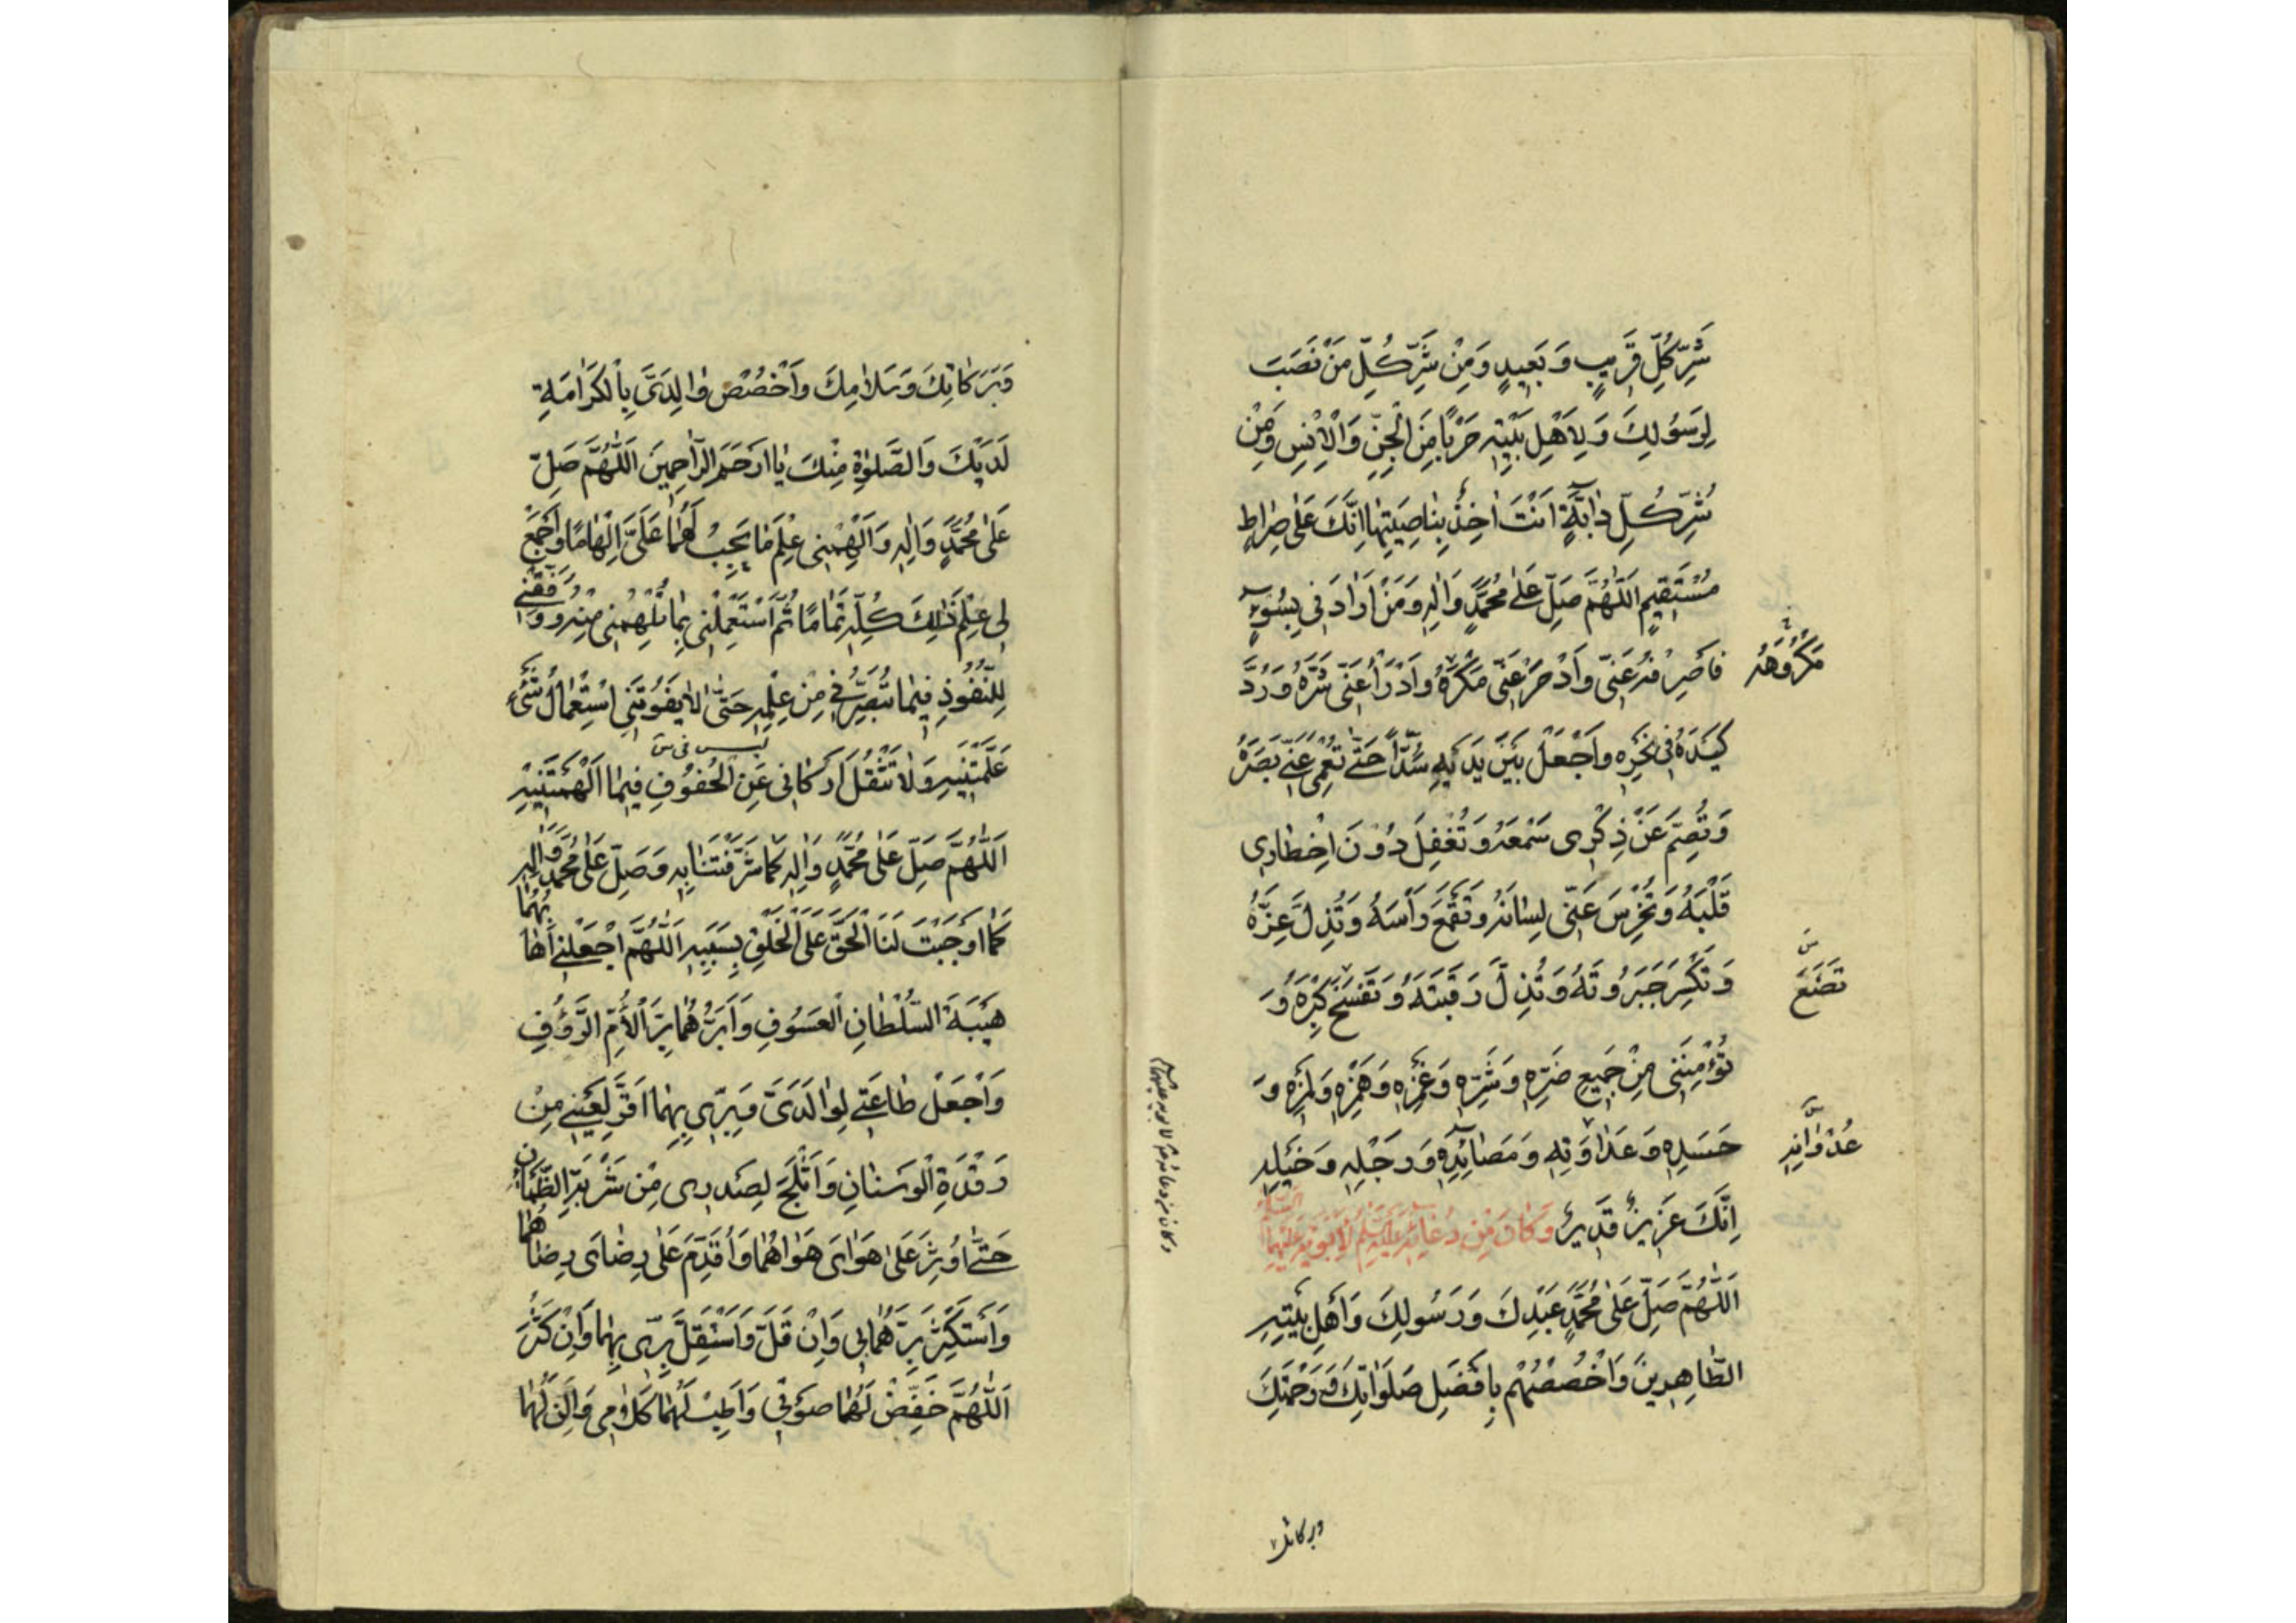 شَرِّ كُلِّ قَرِيبٍ وَ بَعِيدٍ وَمِنْ شَرِّ كُلِّ مَنْ نَصَبَ
لِرَسُولِكَ وَ لِاَهْلِ بَيْتِهِ حَرْبًا مِنَ الْجِنِّ وَالْاِنْسِ وَمِنْ
شَرِّ كُلِّ دٰابَّةٍ اَنْتَ اٰخِذٌ بِنٰاصِيَتِهٰا اِنَّكَ عَلٰى صِرٰاطٍ
مُسْتَقِيمٍ اَللّٰهُمَّ صَلِّ عَلٰى مُحَمَّدٍ وَاٰلِهِ وَمَنْ اَرٰادَنِى بِسُوٓءٍ
فَاصْرِفْهُ عَنِّى وَادْحَرْ عَنِّى مَكْرَهُ وَادْرَأْ عَنِّى شَرَّهُ وَرُدَّ
مَكْرُوهَهُ
كَيْدَهُ فِى نَحْرِهِ وَاجْعَلْ بَيْنَ يَدَيْهِ سُدًّا حَتّٰى تُعْمِىَ عَنِّى بَصَرَهُ
وَتُصِمَّ عَنْ ذِكْرِى سَمْعَهُ وَ تُقْفِلَ دُونَ اِخْطٰارِى
قَلْبَهُ وَ تُخْرِسَ عَنِّى لِسٰانَهُ وَ تَقْمَعَ رَأْسَهُ وَ تُذِلَّ عِزَّهُ
وَ تَكْسِرَ جَبَرُوتَهُ وَ تُذِلَّ رَقَبَتَهُ وَ تَفْسَخَ كِبْرَهُ وَ
تَضَعَ س
تُؤْمِنَنِى مِنْ جَمِيعِ ضَرِّهِ وَ شَرِّهِ وَ غَمْزِهِ وَ هَمْزِهِ وَ لَمْزِهِ وَ
حَسَدِهِ وَ عَدٰاوَتِهِ وَ مَصَائِدِهِ وَ رَجْلِهِ وَ خَيْلِهِ
عُدْوٰانِهِ س
اِنَّكَ عَزِيزٌ قَدِيرٌ وَ كَانَ مِنْ دُعَائِهِ عَلَيْهِ السَّلَمُ لِاَبَوَيْهِ عَلَيْهِمَا السَّلَامُ
اَللّٰهُمَّ صَلِّ عَلٰى مُحَمَّدٍ عَبْدِكَ وَ رَسُولِكَ وَ اَهْلِ بَيْتِهِ
الطّٰاهِرِينَ وَ اخْصُصْهُمْ بِاَفْضَلِ صَلَوٰاتِكَ وَ رَحْمَتِكَ
وبركاتك
وَ بَرَكٰاتِكَ وَ سَلٰامِكَ وَ اَخْصُصْ وٰالِدَىَّ بِالْكَرٰامَةِ
لَدَيْكَ وَ الصَّلٰوةِ مِنْكَ يٰا اَرْحَمَ الرّٰاحِمِينَ اَللّٰهُمَّ صَلِّ
عَلٰى مُحَمَّدٍ وَ اٰلِهِ وَ اَلْهِمْنِى عِلْمَ مٰا يَجِبُ لَهُمٰا عَلَىَّ اِلْهٰامًا وَ اجْمَعْ
لِى عِلْمَ ذٰلِكَ كُلِّهِ تَمٰامًا ثُمَّ اسْتَعْمِلْنِى بِمٰا تُلْهِمُنِى مِنْهُ وَ وَفِّقْنِى
لِلنُّفُوذِ فِيمٰا تُبَصِّرُنِى مِنْ عِلْمِهِ حَتّٰى لٰا يَفُوتَنِى اسْتِعْمٰالُ شَىْءٍ
ليس فى س
عَلَّمْتَنِيهِ وَ لٰا تَثْقُلَ اَرْكٰانِى عَنِ الْحُفُوفِ فِيمٰا اَلْهَمْتَنِيهِ
اَللّٰهُمَّ صَلِّ عَلٰى مُحَمَّدٍ وَ اٰلِهِ كَمٰا شَرَّفْتَنٰا بِهِ وَ صَلِّ عَلٰى مُحَمَّدٍ وَ اٰلِهِ
كَمٰا اَوْجَبْتَ لَنَا الْحَقَّ عَلَى الْخَلْقِ بِسَبَبِهِ اَللّٰهُمَّ اجْعَلْنِى اَهٰابُهُمٰا
هَيْبَةَ السُّلْطٰانِ الْعَسُوفِ وَ اَبَرُّهُمٰا بِرَّ الْاُمِّ الرَّؤُفِ
وَ اجْعَلْ طٰاعَتِى لِوٰالِدَىَّ وَ بِرِّى بِهِمٰا اَقَرَّ لِعَيْنِى مِنْ
رَقْدَةِ الْوَسْنٰانِ وَ اَثْلَجَ لِصَدْرِى مِنْ شَرْبَةِ الظَّمْاٰنِ
حَتّٰى اُوثِرَ عَلٰى هَوٰاىَ هَوٰاهُمٰا وَ اُقَدِّمَ عَلٰى رِضٰاىَ رِضٰاهُمٰا
وَ اَسْتَكْثِرَ بِرَّهُمٰا بِى وَ اِنْ قَلَّ وَ اَسْتَقِلَّ بِرِّى بِهِمٰا وَ اِنْ كَثُرَ
اَللّٰهُمَّ خَفِّضْ لَهُمٰا صَوْتِى وَ اَطِبْ لَهُمٰا كَلٰامِى وَ اَلِنْ لَهُمٰا